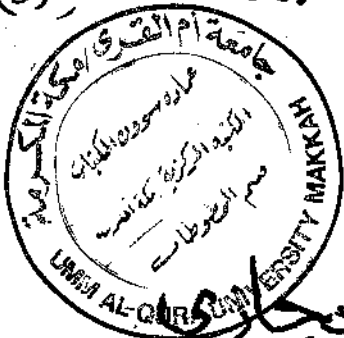 جامعة أم القرى / مكة المكرمة
عمادة شؤون المكتبات
المكتبة المركزية بمكة المكرمة
قسم المخطوطات
UMM AL-QURA UNIVERSITY MAKKAH